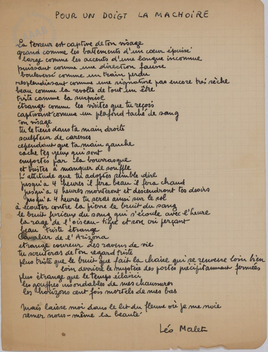 POUR UN DOIGT LA MACHOIRE
La terreur est captive de ton visage
grand comme les battements d'un cœur épuisé
large comme les accents d'une langue inconnue
puissant comme une direction fausse
bouleversé comme un train perdu
resplendissant comme une signature pas encore très sèche
beau comme la révolte de tout un être
triste comme la surprise
étrange comme les visites que tu reçois
captivant comme un plafond taché de sang
Ton visage
tu le tiens dans ta main droite
sculpteur de caresses
cependant que ta main gauche
cache tes yeux qui sont
emportés par la bourrasque
et voisins à manquer de souffle
L'attitude que tu adoptes semble dire
jusqu'à 4 heures il fera beau il fera chaud
jusqu'à 4 heures montent et descendent les désirs
jusqu'à 4 heures tu seras assis sur le sol
à écouter contre la fibre le bruit du sang
le bruit précieux du sang qui s'écoule avec l'heure
La rage de l'oiseau-tigre et son cri perçant
beau triste étrange
cavalier de l'Arizona
étrange coureur des savanes de vie
tu scruteras de ton regard triste
plus triste que le bruit que fait la chaise qui se renverse loin bien
loin derrière le mystère des portes précipitamment fermées
plus étrange que le temps éclairci
les gouffres insondables de mes chaumières
les horizons cent fois mortels de mes bas
Mais laisse-moi dans le lit du fleuve où je me noie
ramer nous-même la beauté
Léo Malet